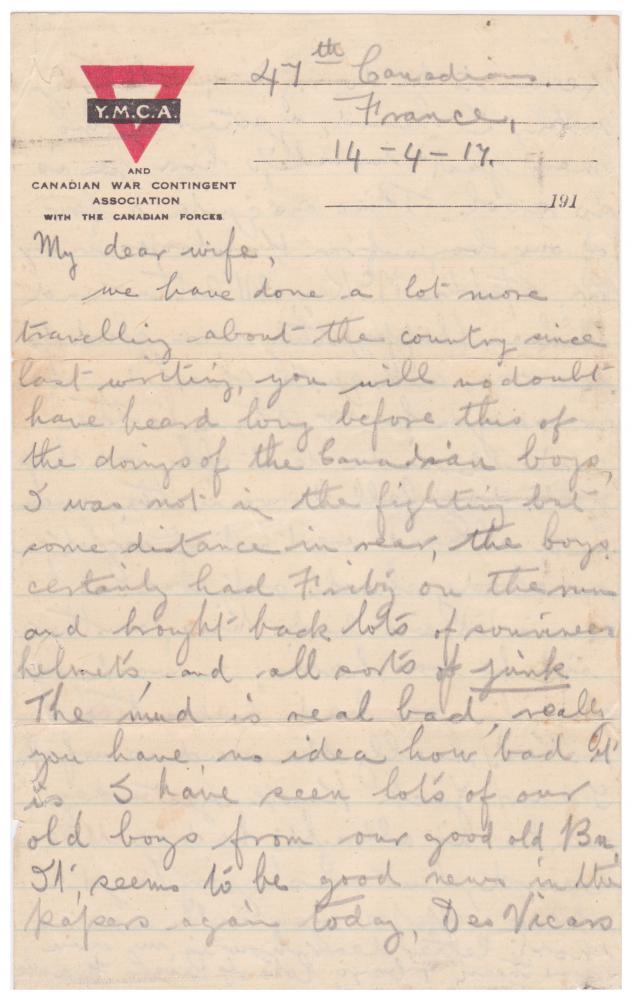 47th Canadians.
France,
14-4-17.
191
Y.M.C.A.
AND
CANADIAN WAR CONTINGENT
ASSOCIATION
WITH THE CANADIAN FORCES
My dear wife,
we have done a lot more
travelling about the country since
last writing, you will no doubt
have heard long before this of
the doings of the Canadian boys,
I was not in the fighting but
some distance in rear, the boys
certainly had Fritz on the run
and brought back lots of
helmets, and all sorts of junk
The mud is real bad, really
you have no idea how bad it
is I have seen lots of our
old boys from our good old Bn.
It, seems to be good news in the
papers again today, Des Vicars